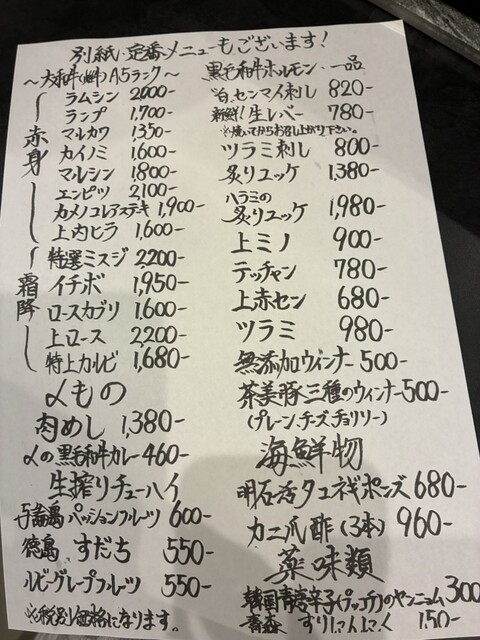 別紙、定番メニューもございます!
〜大和牛(雌牛)A5ランク〜
赤身
ラムシン 2000-
ランプ 1,700-
マルカワ 1,350-
カイノミ 1,600-
マルシン 1,800-
エンピツ 2100-
カメノコレアステキ 1,900-
上内ヒラ 1,600-
霜降
特選ミスジ 2200-
イチボ 1,950-
ロースカブリ 1,600-
上ロース 2,200-
特上カルビ 1,680-
〆もの
肉めし 1,380-
〆の黒毛和牛カレー 460-
生搾りチューハイ
与論島 パッションフルーツ 600-
徳島 すだち 550-
ルビーグレープフルーツ 550-
※税別価格になります。
黒毛和牛ホルモン、一品
白センマイ刺し 820-
新鮮!生レバー 780-
※焼いてからお召し上がり下さい。
ツラミ刺し 800-
炙りユッケ 1,380-
ハラミの
炙りユッケ 1,980-
上ミノ 900-
テッチャン 780-
上赤セン 680-
ツラミ 980-
無添加ウィンナー 500-
茶美豚三種のウィンナー 500-
(プレーン、チーズ、チョリソー)
海鮮物
明石活タコネギポンズ 680-
カニ爪酢(3本) 960-
薬味類
韓国青唐辛子(プッチ)のヤンニョム 300
青森 すりにんにく 150-